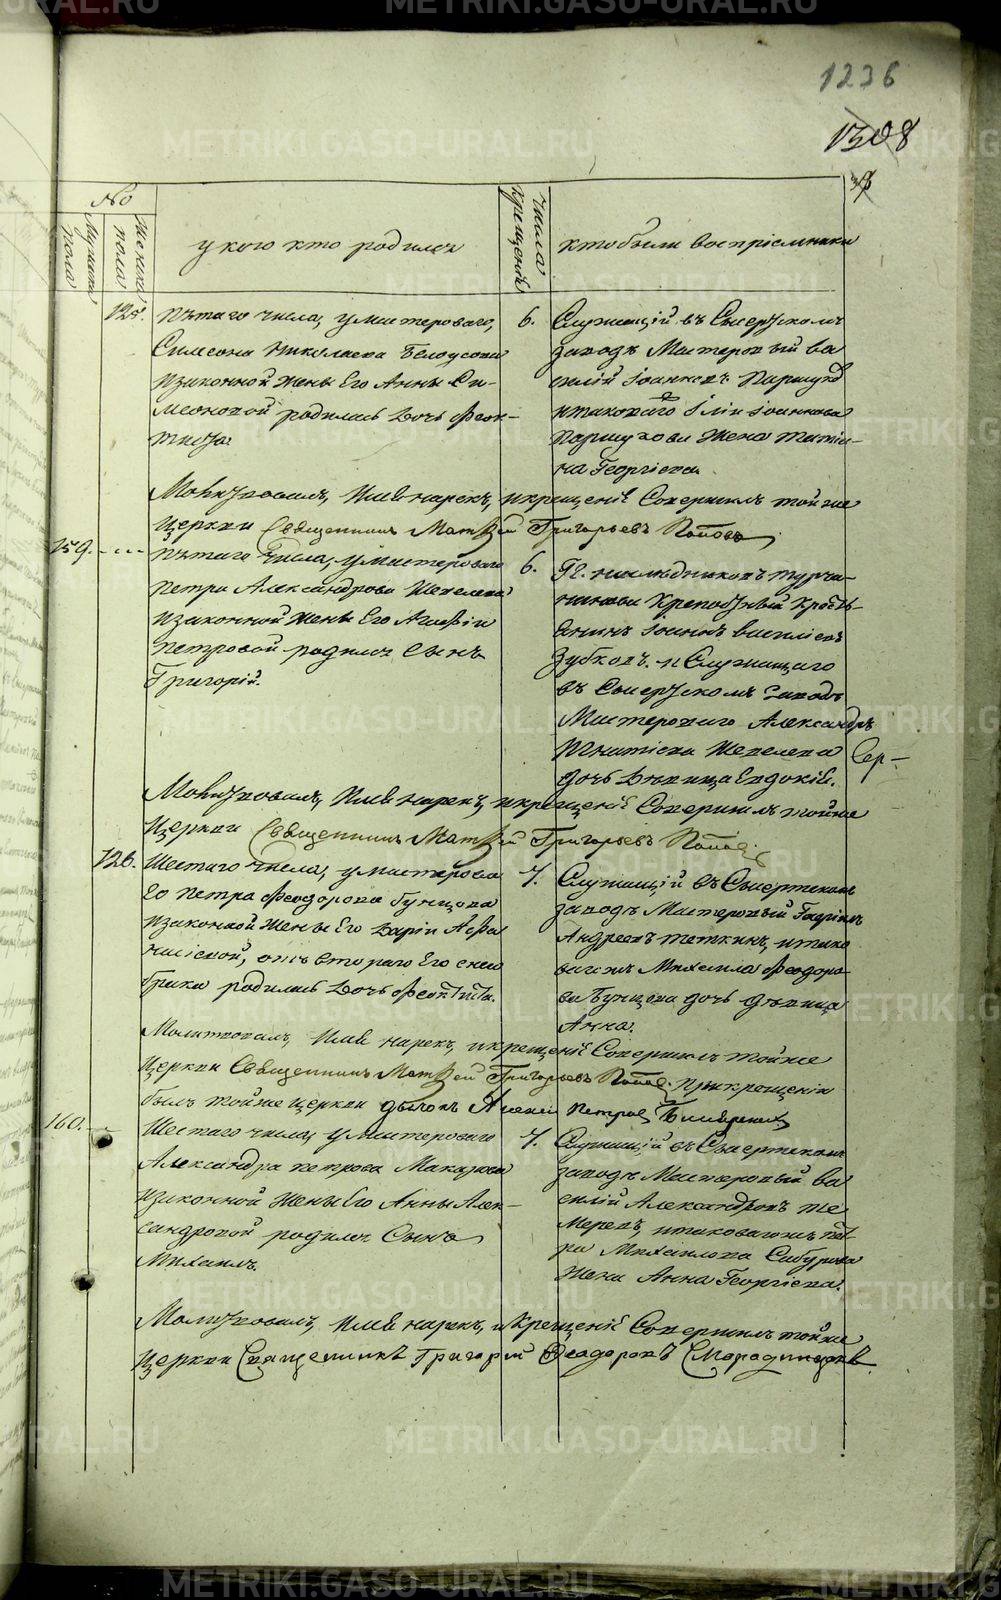 METRIKI.GASO-URAL.RU
1236
1308
№
Мужеска пола
Женска пола
у кого кто родился
Числа крещенія
кто были воспріемники
125.
пятаго числа, у мастероваго,
Симеона Николаева Белоусова
и законной жены Его Анны Си-
меоновой родилась Дочь Феок-
тиста.
6.
Служащій въ Сысертскомъ
заводѣ Мастеровый Ва
силій Іоанновъ Паршуков
и таковаго Іліи Іоаннова
Паршукова Жена Татія-
на Георгіева.
Молитвовалъ, Имя нарекъ, и крещеніе Совершилъ тойже
Церкви Священникъ Матвей Григорьевъ Попов
159.
пятаго Числа, у мастероваго
Петра Александрова Шепелева
и законной жены Его Агафіи
Петровой родился Сынъ
Григорій.
6.
Гг. наслѣдниковъ Турча-
нинова Крепостный Кресть-
янинъ Іоаннъ Василіевъ
Зубковъ. и Служащаго
въ Сысертскомъ заводѣ
Мастероваго Александръ
Игнатіева Шепелева
дочь Дѣвица Евдокія.
Сер-
Молитвовалъ, Имя нарекъ, и крещеніе Совершилъ тойже
Церкви Священникъ Матвей Григорьевъ Попов
126.
Шестаго числа, у мастерова
го Петра Феодорова Бунцова
и законной Жены Его Даріи Афа
насіевой, отъ втораго Его
брака родилась Дочь Феоктиста.
7.
Служащій въ Сысертском
заводѣ Мастеровый Гавріилъ
Андреевъ Теткинъ, и тако
ваго Михаила Феодоро-
ва Бунцова дочь дѣвица
Анна.
Молитвовалъ, Имя нарекъ, и крещеніе Совершилъ тойже
Церкви Священникъ Матвей Григорьевъ Попов. при крещеніи
былъ тойже церкви дьячокъ Алексей Петров
160.
Шестаго числа, у мастероваго
Александра Петрова Макарова
и законной жены Его Анны Алек-
сандровой родился Сынъ
Михаилъ.
7.
Служащій въ Сысертском
заводѣ Мастеровый Ва
силій Александровъ Те
меревъ, и таковагожъ Пет
ра Михаилова Сабурова
Жена Анна Георгіева.
Молитвовалъ, Имя нарекъ, и Крещеніе Совершилъ тойже
Церкви Священникъ Григорій Феодоровъ Смородинцовъ